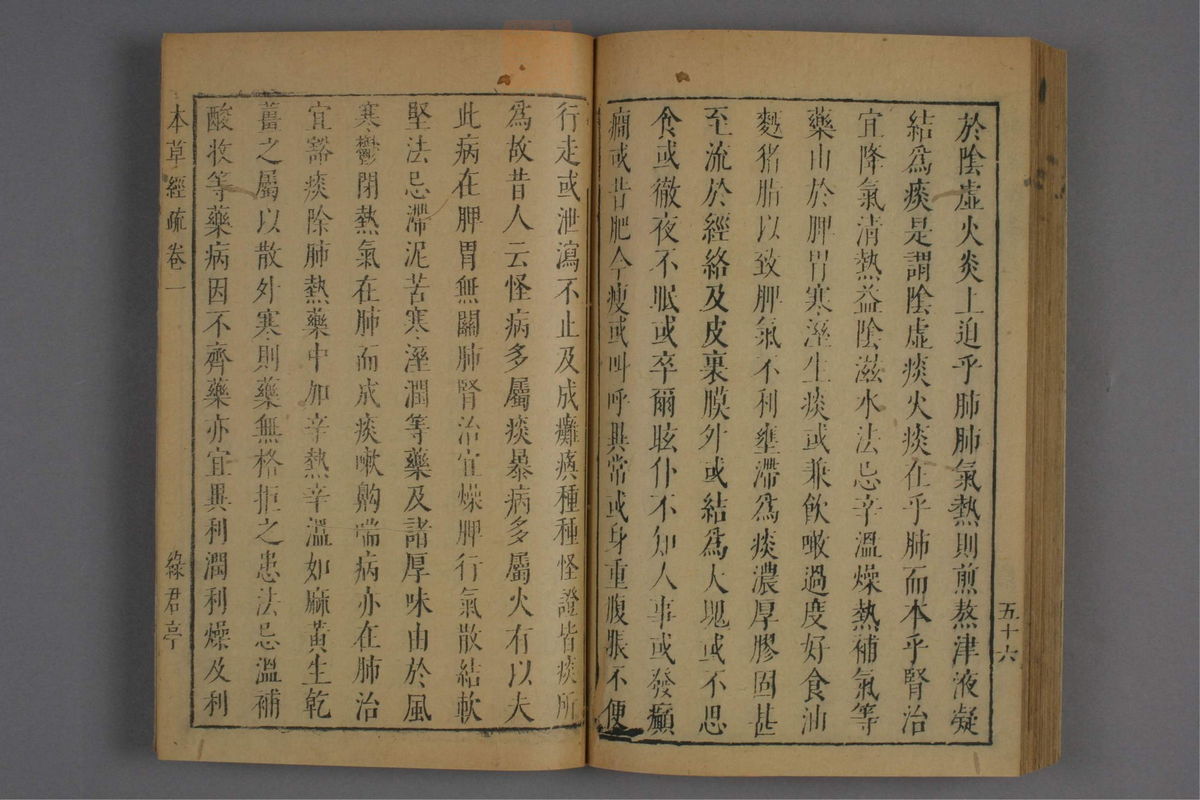 五十六
於陰虛火炎上迫乎肺肺氣熱則煎熬津液凝
結爲痰是謂陰虛痰火痰在乎肺而本乎腎治
宜降氣清熱益陰滋水法忌辛溫燥熱補氣等
藥由於脾胃寒溼生痰或兼飲啖過度好食油
麪猪脂以致脾氣不利壅滯爲痰濃厚膠固甚
至流於經絡及皮裏膜外或結爲大塊或不思
食或徹夜不眠或卒爾眩仆不知人事或發癲
癇或昔肥今瘦或叫呼異常或身重腹脹不便
行走或泄瀉不止及成癱瘓種種怪證皆痰所
爲故昔人云怪病多屬痰暴病多屬火有以夫
此病在脾胃無關肺腎治宜燥脾行氣散結軟
堅法忌滯泥苦寒溼潤等藥及諸厚味由於風
寒鬱閉熱氣在肺而成痰嗽齁喘病亦在肺治
宜豁痰除肺熱藥中加辛熱辛溫如麻黃生乾
薑之屬以散外寒則藥無格拒之患法忌溫補
酸收等藥病因不齊藥亦宜異利潤利燥及利
本草經疏卷一
綠君亭